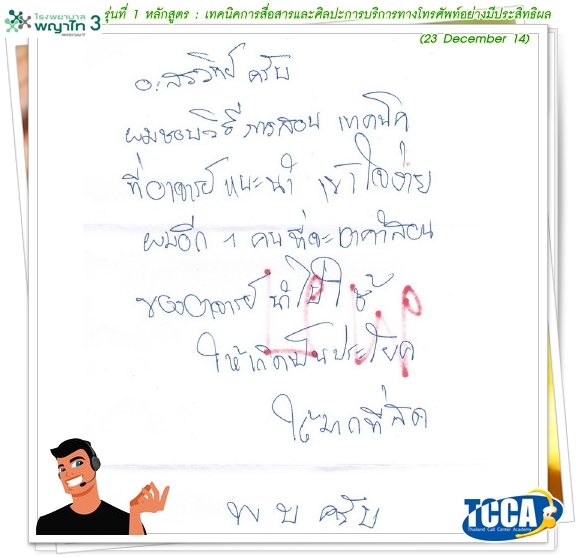 โรงพยาบาล
พญาไท 3
รุ่นที่ 1 หลักสูตร : เทคนิคการสื่อสารและศิลปะการบริการทางโทรศัพท์อย่างมีประสิทธิผล
(23 December 14)
อ.สรวิทย์ ครับ
ผมชอบวิธีการสอน เทคนิค
ที่อาจารย์แนะนำ เข้าใจง่าย
ผมอีก 1 คนที่จะเอาคำสอน
ของอาจารย์ นำไปใช้
ให้เกิดเป็นประโยค
ให้มากที่สุด
ครับ
TCCA
Thailand Call Center Academy